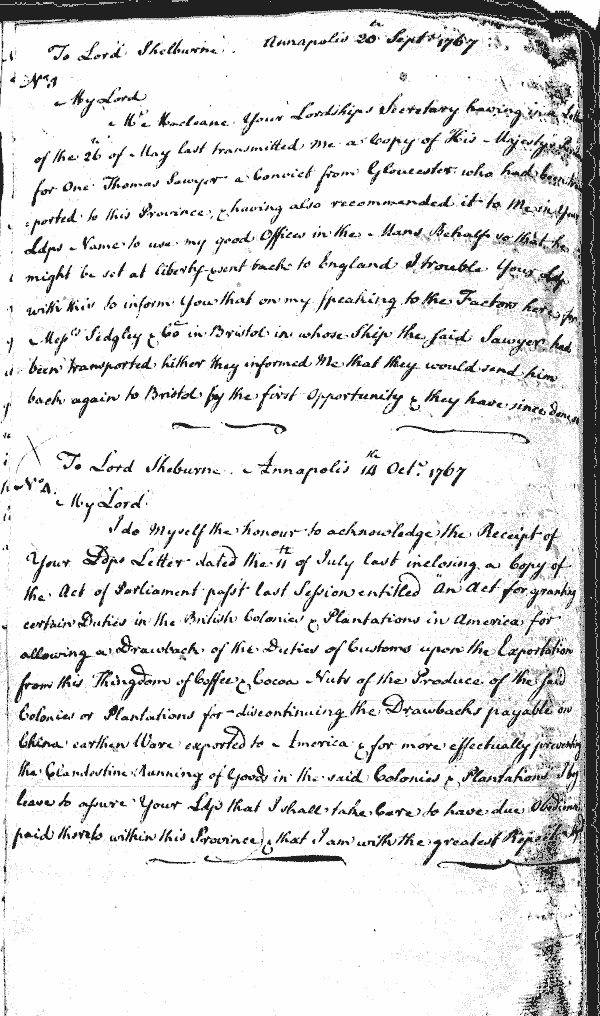 To Lord Shelburne. Annapolis 20th Sept. 1767
No. 3
My Lord
Mr. Macleane Your Lordships Secretary having in a
of the 26th of May last transmitted me a Copy of His Majestys
for One Thomas Sawyer a Convict from Gloucester who had been
ported to this Province, & having also recommended it to Me in Your
Ldps Name to use my good Offices in the Mans Behalfe so that he
might be set at liberty & sent back to England I trouble Your Ldp
with this to inform You that on my Speaking to the Factors here for
Messrs. Sedgley & Co. in Bristol in whose Ship the said Sawyer had
been transported hither they informed Me that they would send him
back again to Bristol by the first Opportunity & they have since done
To Lord Sheburne. Annapolis 14th Octr. 1767
No. 4.
My Lord
I do Myself the honour to acknowledge the Receipt of
Your Ldps Letter dated the 11th of July last inclosing a Copy of
the Act of Parliament past last Session entitled "An Act for granting
certain Duties in the British Colonies & Plantations in America for
allowing a Drawback of the Duties of Customs upon the Exportation
from this Kingdom of Coffee & Cocoa Nuts of the Produce of the said
Colonies or Plantations for discontinuing the Drawbacks payable on
China earthen Ware exported to America & for more effectually preventing
the Clandestine Running of Goods in the said Colonies & Plantations" I beg
leave to assure Your Ldp that I shall take Care to have due Obedience
paid thereto within this Province & that I am with the greatest Respect